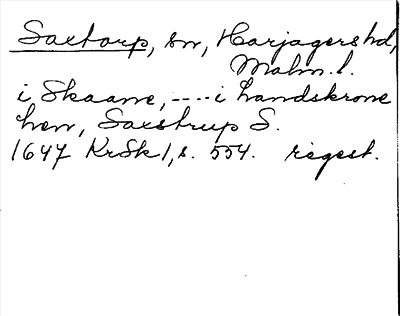 Saxtorp, sn, Harjagers hd,
Malm. l.
i Skaane, ---- i Landskrone
Len, Saxstrup S.
1647 KrSk 1, s. 554. regest.